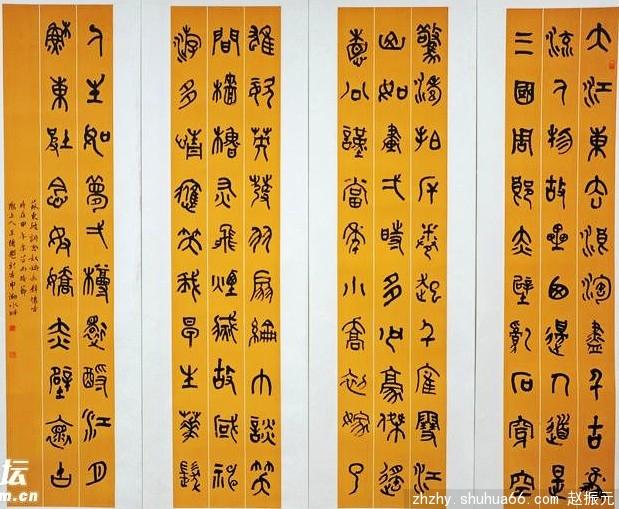 大江東去浪淘盡千古風
流人物故壘西邊人道是
三國周郎赤壁亂石穿空
驚濤拍岸卷起千堆雪江
山如畫一時多少豪傑遙
想公瑾當年小喬初嫁了
雄姿英發羽扇綸巾談笑
間檣櫓灰飛煙滅故國神
遊多情應笑我早生華髮
人生如夢一樽還酹江月
蘇東坡念奴嬌赤壁懷古
蘇東坡詞念奴嬌赤壁懷古
坛
m.cn
zhzhy.shuhua66.com 赵振元